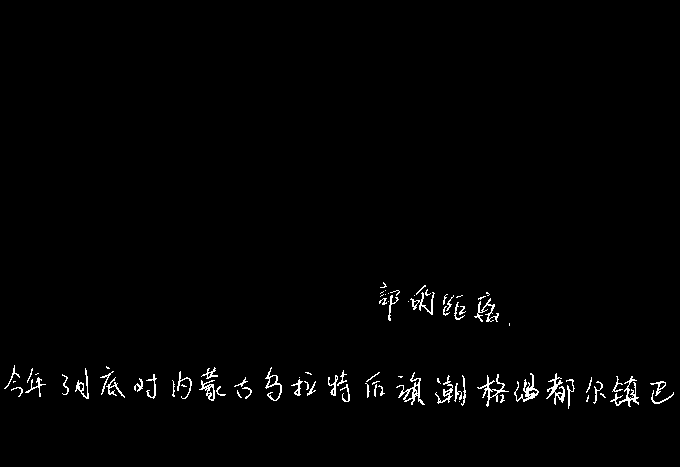 部的距离.
今年3月底时内蒙古乌拉特后旗潮格温都尔镇巴